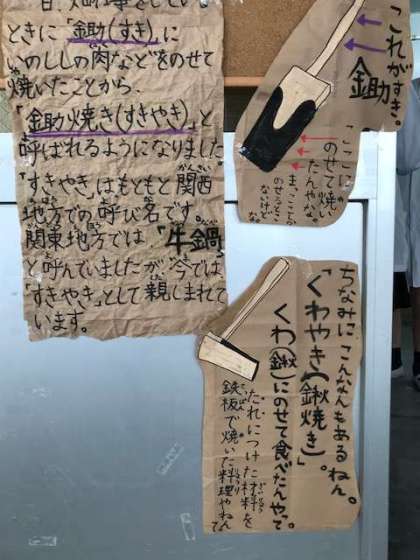 ときに「鋤(すき)」に
いのししの肉などをのせて
焼いたことから、
「鋤焼き(すきやき)」と
呼ばれるようになりました
「すきやき」はもともと関西
地方での呼び名です。
関東地方では「牛鍋」
と呼んでいましたが今では
「すきやき」として親しまれて
います。
「これがすき。
鋤
「ここに
のせて焼い
たんやな。
ま、ここら
のせるとこ
ないけどな
ちなみにこんなんもあるねん。
「くわやき(鍬焼き)」。
くわ(鍬)にのせて食べたんやって。
たれにつけた材料を
鉄板で焼いた料理やねんて